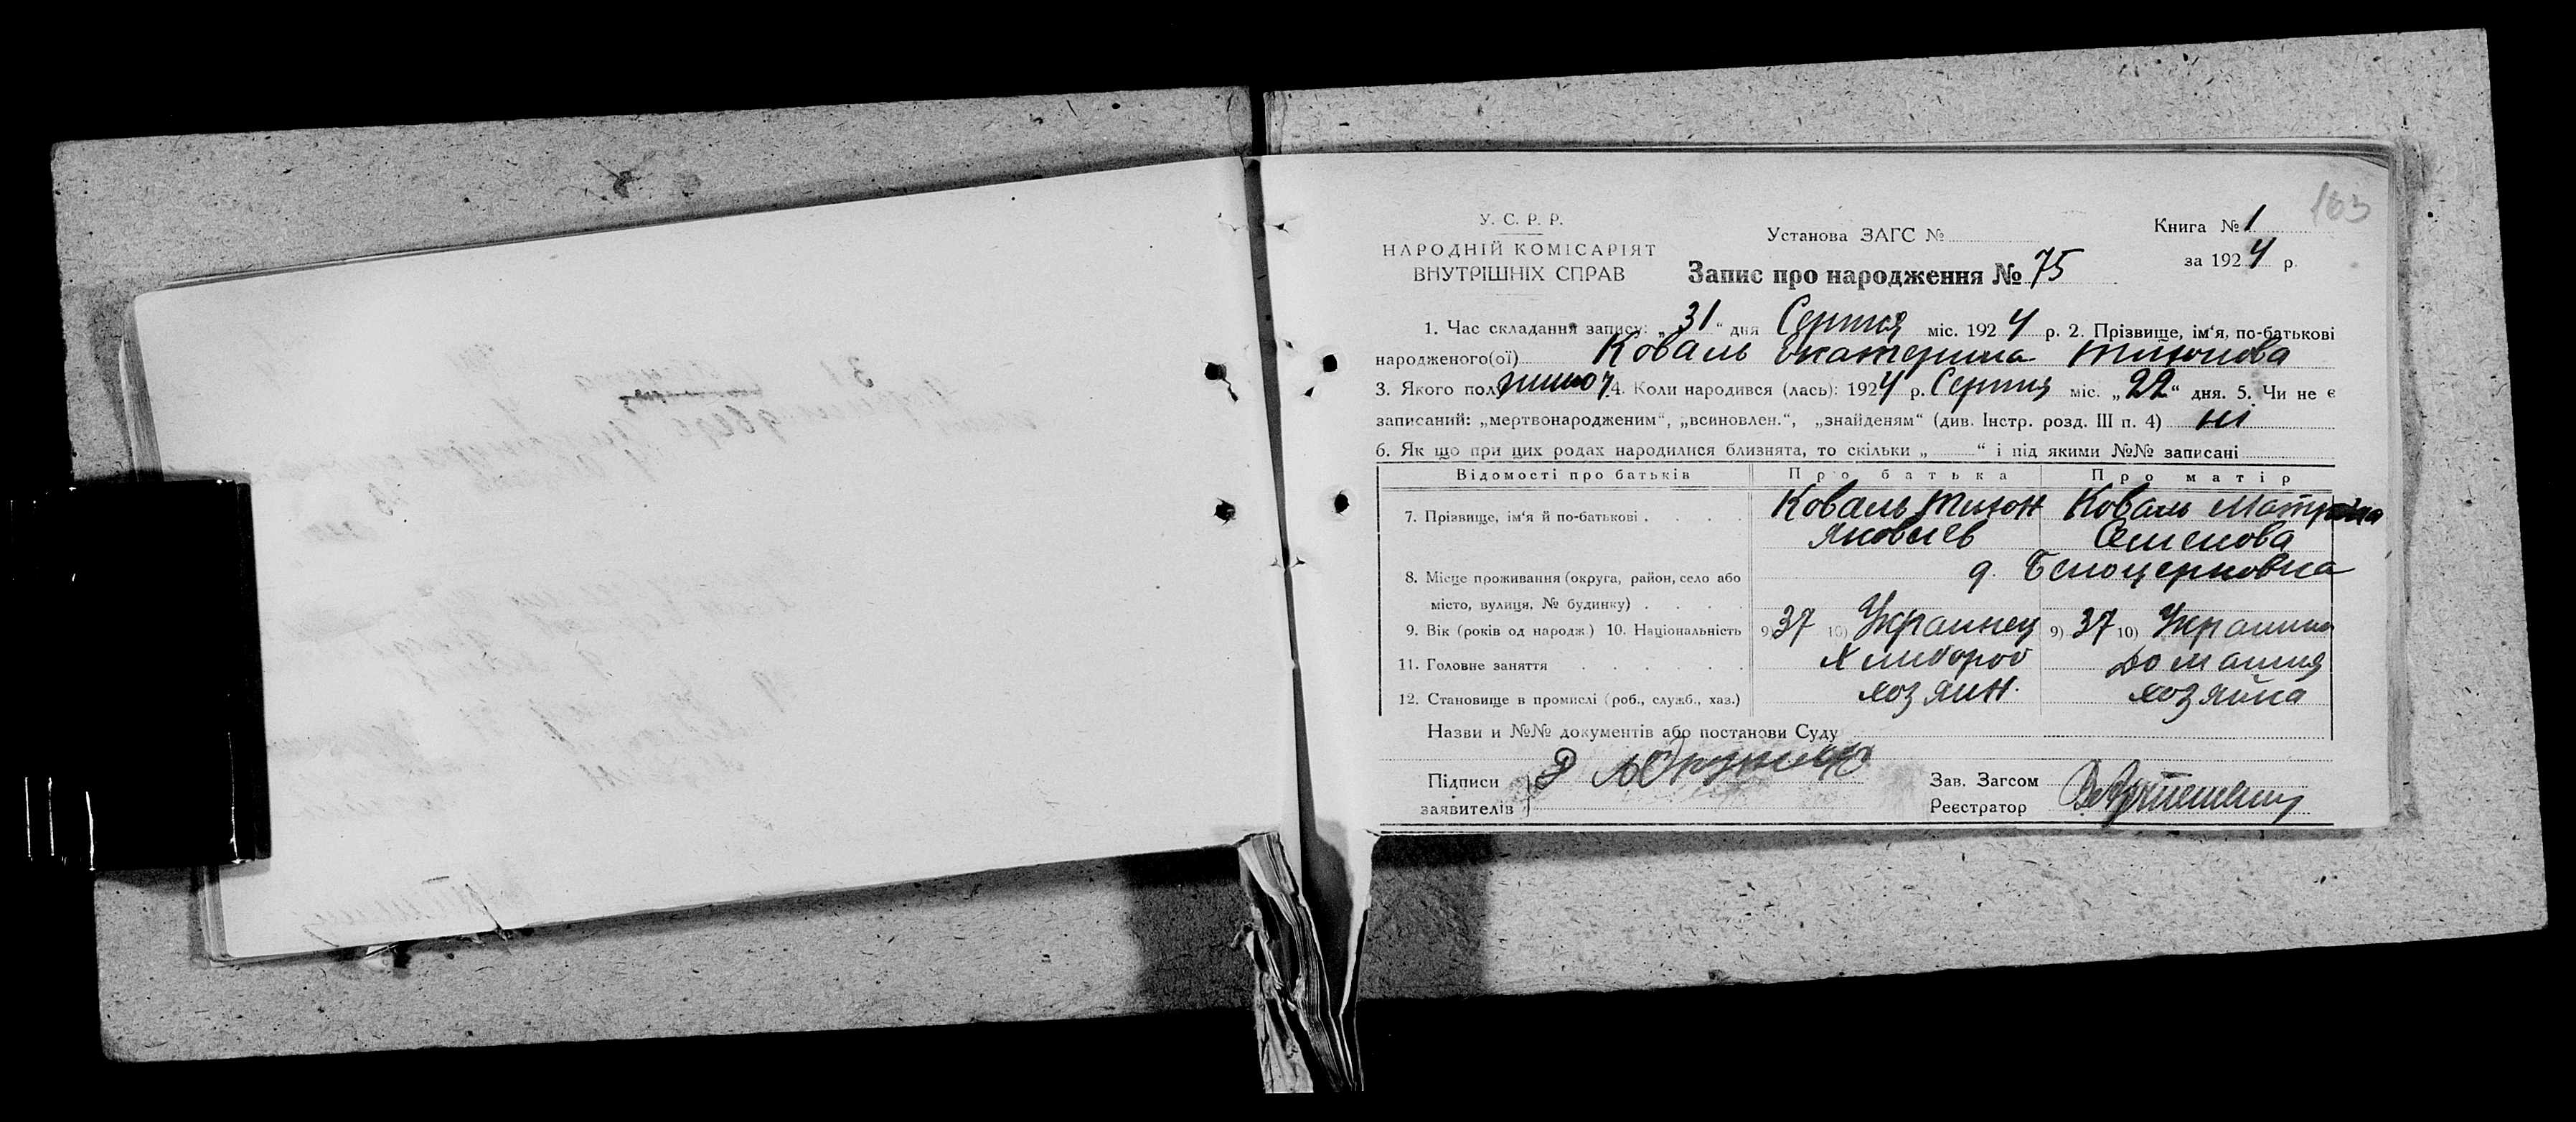 163
У. С. Р. Р.
НАРОДНІЙ КОМІСАРІЯТ
ВНУТРІШНІХ СПРАВ
Установа ЗАГС №
Книга № 1
за 1924 р.
Запис про народження № 75
1. Час складання запису: „31“ дня Серпня міс. 1924 р. 2. Прізвище, ім‘я, по-батькові
народженого(ої) Коваль Екатерина Тихонова
3. Якого пол жиноч 4. Коли народився (лась): 1924 р. Серпня міс. „22“ дня. 5. Чи не є
записаний: „мертвонародженим“, „всиновлен.“, „знайденям“ (див. Інстр. розд. III п. 4) ні
6. Як що при цих родах народилися близнята, то скільки „ “ і під якими №№ записані
Відомості про батьків Про батька Про матір
7. Прізвище, ім‘я й по-батькові . . . . Коваль Тихон Коваль Матрона
Яковлев Семенова
8. Місце проживання (округа, район, село або д. Белоцерковка
місто, вулиця, № будинку) . . . .
9. Вік (років од народж.) 10. Національність 9) 37 10) Украинец 9) 37 10) Украинка
11. Головне заняття . . . . . . Хлибороб Домашня
12. Становище в промислі (роб., служб., хаз.) хозяин. хозяйка
Назви и №№ документів або постанови Суду
Підписи
заявителів
Зав. Загсом
Реєстратор